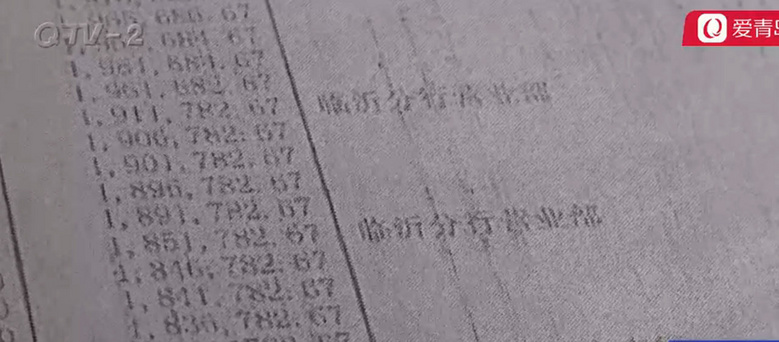 QTV-2
爱青岛
1,961,682.67
1,911,782.67 临沂分行营业部
1,906,782.67
1,901,782.67
1,896,782.67
1,891,782.67
1,851,782.67 临沂分行营业部
1,846,782.67
1,841,782.67
1,836,782.67